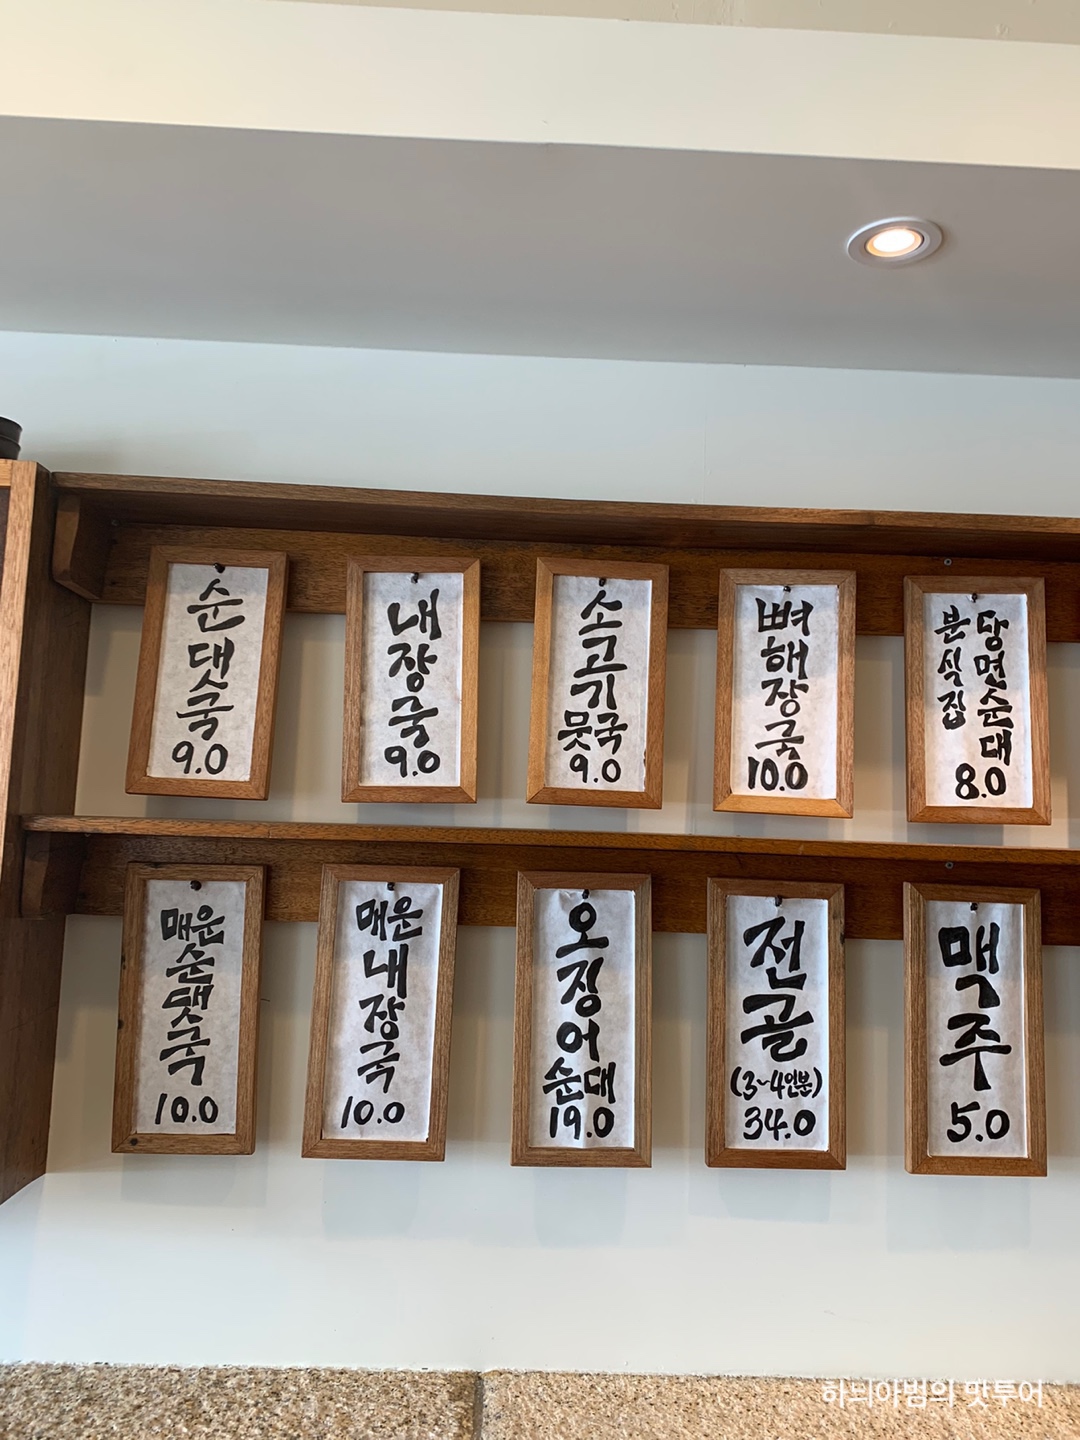 순
댓
국
9.0
내
장
국
9.0
소
고
기
뭇국
9.0
뼈
해
장
국
10.0
분식집
당면순대
8.0
매운
순
댓
국
10.0
매운
내
장
국
10.0
오
징
어
순대
19.0
전
골
(3~4인분)
34.0
맥
주
5.0
하늬아범의 맛투어